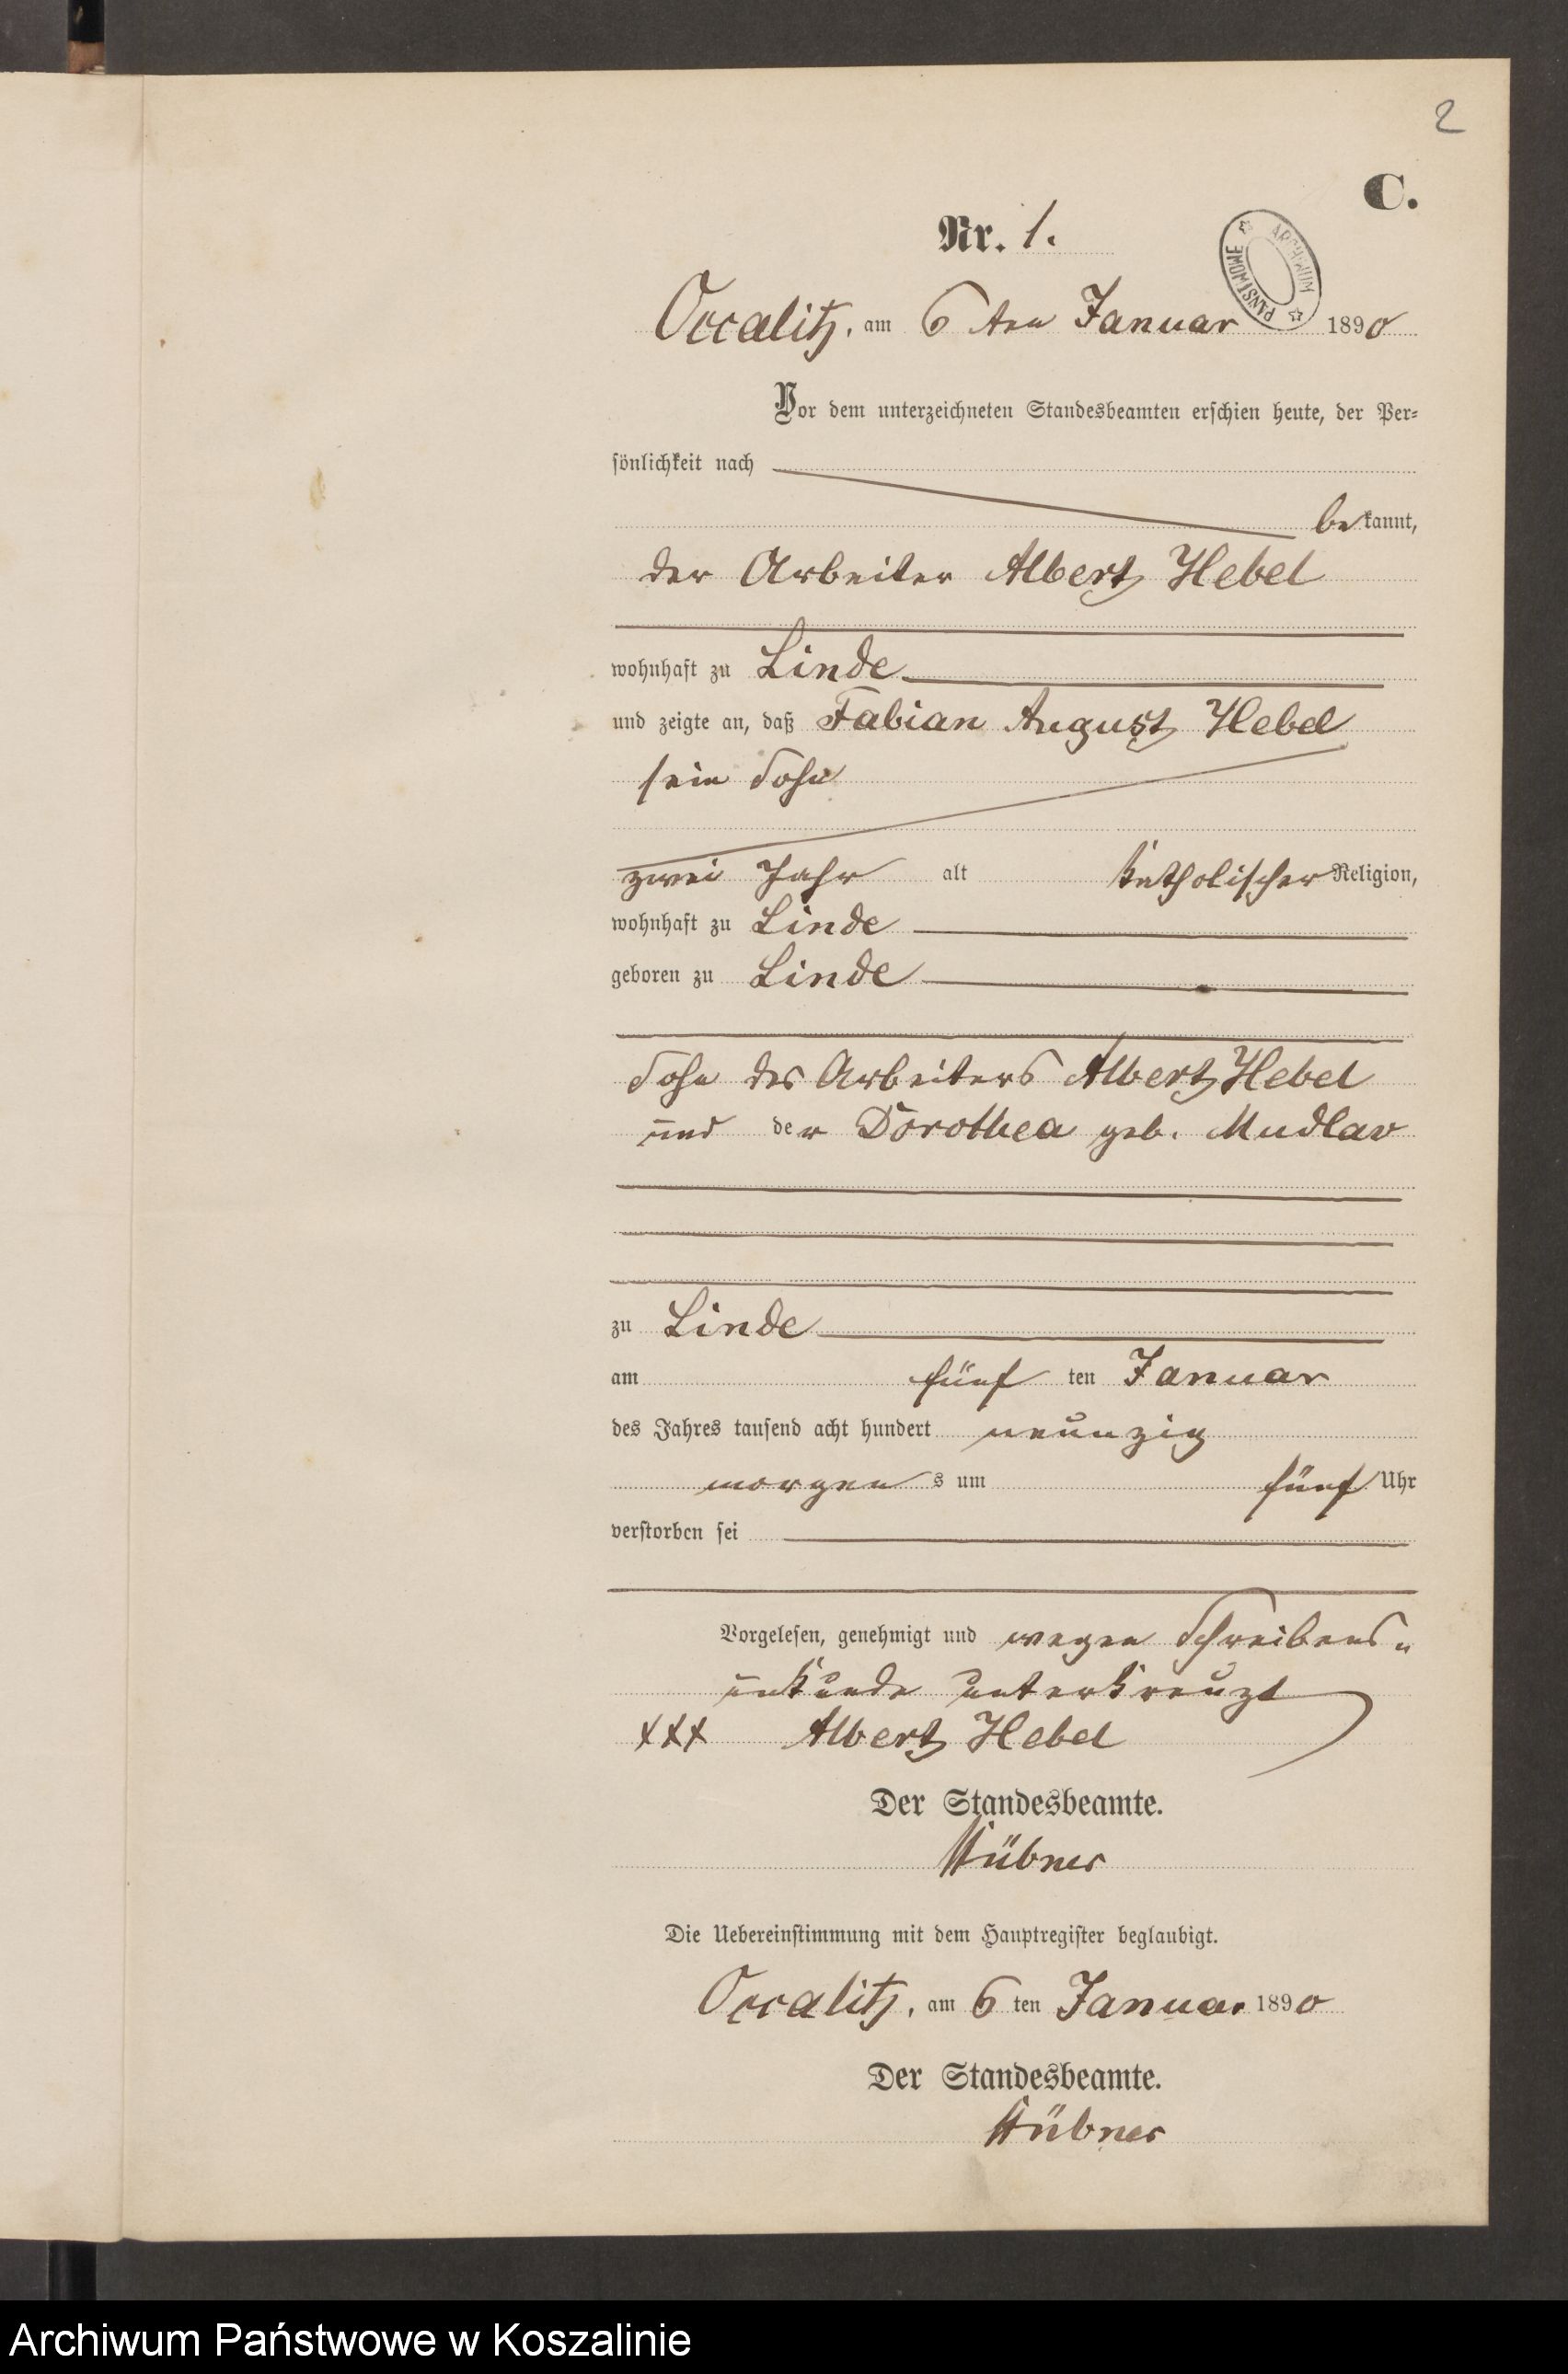 2
C.
Nr. 1.
ARCHIWUM PAŃSTWOWE
Occalitz, am 6 ten Januar 1890
Vor dem unterzeichneten Standesbeamten erschien heute, der Per-
sönlichkeit nach
bekannt,
der Arbeiter Albert Hebel
wohnhaft zu Linde
und zeigte an, daß Fabian August Hebel
sein Sohn
zwei Jahr alt katholischer Religion,
wohnhaft zu Linde
geboren zu Linde
Sohn des Arbeiters Albert Hebel
und der Dorothea geb. Mudlav
zu Linde
am fünf ten Januar
des Jahres tausend acht hundert neunzig
morgens um fünf Uhr
verstorben sei
Vorgelesen, genehmigt und wegen Schreibens-
unkunde unterkreuzt
XXX Albert Hebel
Der Standesbeamte.
Hübner
Die Uebereinstimmung mit dem Hauptregister beglaubigt.
Occalitz, am 6 ten Januar 1890
Der Standesbeamte.
Hübner
Archiwum Państwowe w Koszalinie